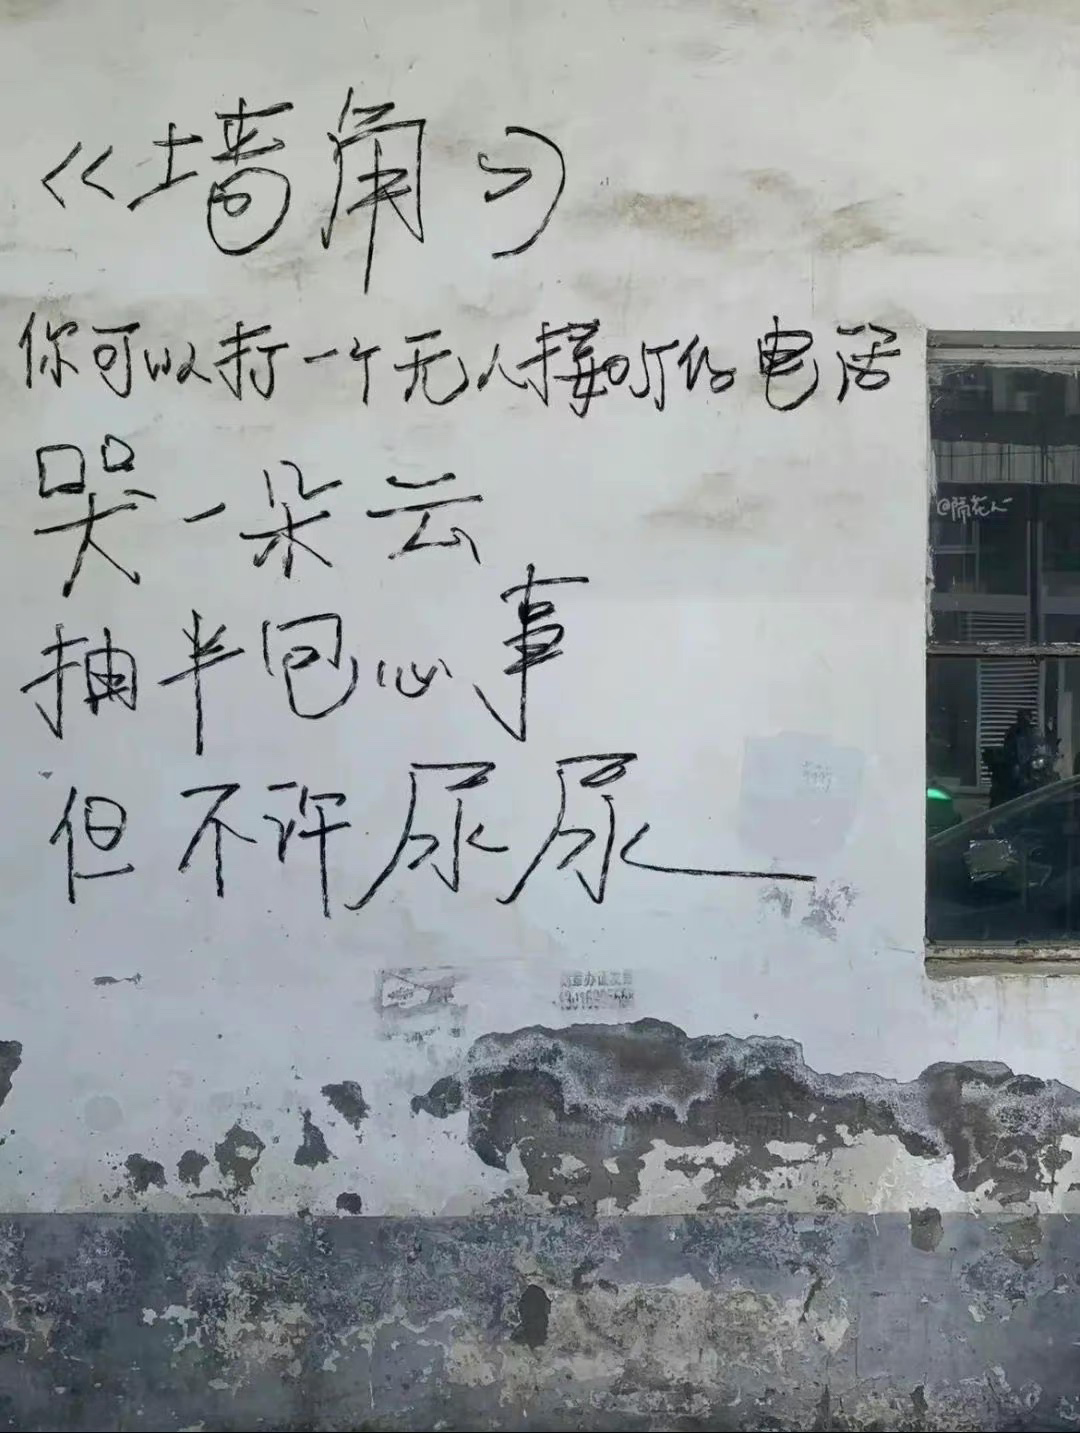 《墙角》
你可以打一个无人接听的电话
哭一朵云
抽半包心事
但不许尿尿
@隔花人
办证